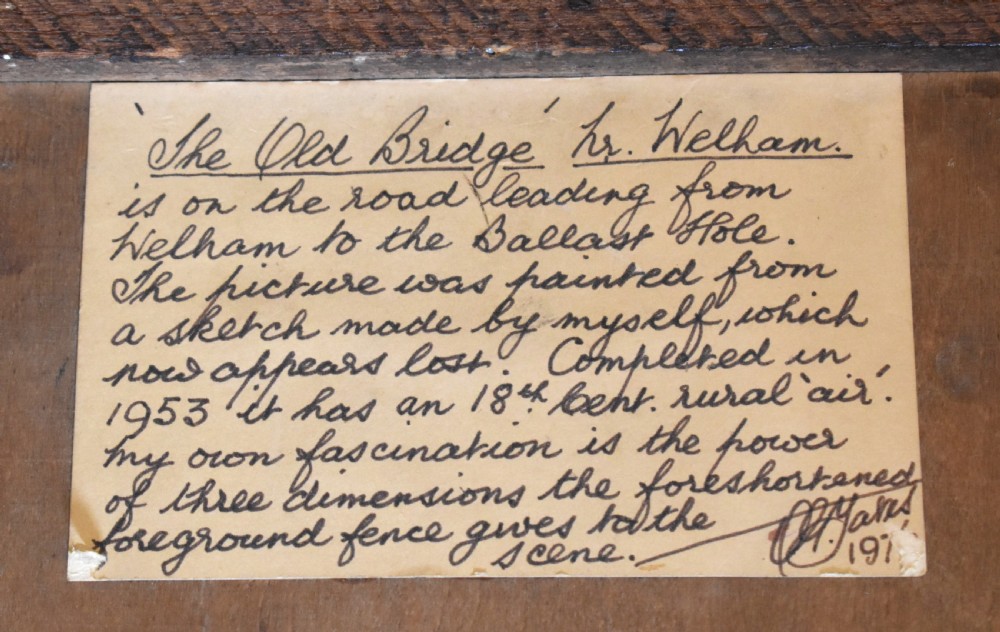 'The Old Bridge' hr. Welham.
is on the road leading from
Welham to the Ballast Hole.
The picture was painted from
a sketch made by myself, which
now appears lost. Completed in
1953 it has an 18th Cent. rural 'air'.
My own fascination is the power
of three dimensions the foreshortened
foreground fence gives to the
scene.